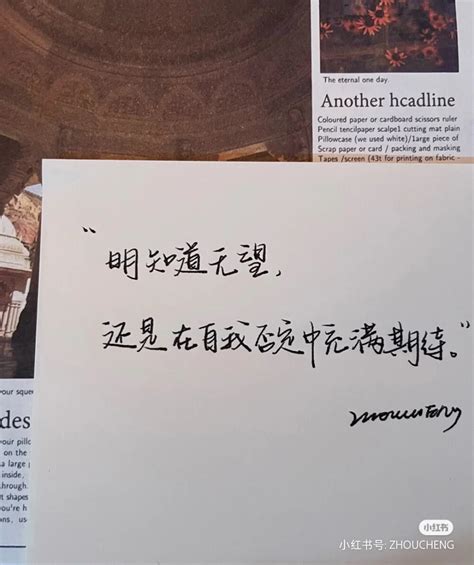 The eternal one day.
Another hcadline
Coloured paper or cardboard scissors ruler
Pencil tencilpaper scalpel cutting mat plain
Pillowcase (we used white)/large piece of
Scrap paper or card / packing and masking
Tapes /screen (43t for printing on fabric -
“明知道无望，
还是在自我否定中充满期待。”
your sque
des
your pillo
on the
a large p
inside,
through.
t shapes
you're h
ons, us-
小红书
小红书号: ZHOUCHENG